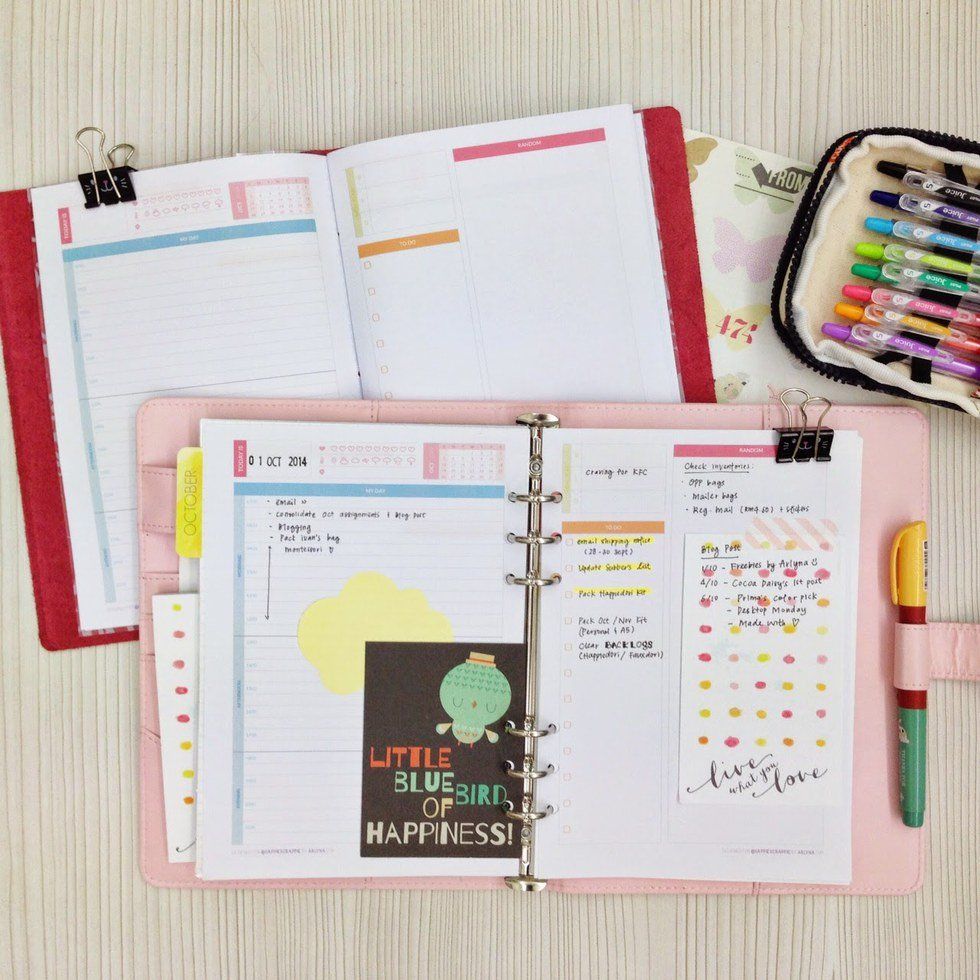 TODAY IS
OCT
MY DAY
RANDOM
TO DO
FROM
474
Juice
Juice
Juice
Juice
Juice
Juice
Juice
Juice
OCTOBER
TODAY IS
01 OCT 2014
OCT
MY DAY
- email
- Consolidate Oct assignments + Blog post
- Blogging
- Pack Ivan's bag
montessori
LITTLE
BLUE BIRD
OF
HAPPINESS!
Craving for KFC
TO DO
email shipping notice
(28-30 Sept)
Update Subbers List
Pack Happiedori Kit
Pack Oct/Nov Kit
(Personal & A5)
Clear BACKLOGS
(Happiedori/Fauxdori)
RANDOM
Check inventories:
- OPP bags
- Mailer bags
- Reg. Mail (RM4.60) + stickers
Blog Post
1/10 - Freebies by Arlyna
4/10 - Cocoa Daisy's 1st post
5/10 - Prima's color pick
- Desktop Monday
- Made with
live
what you
love